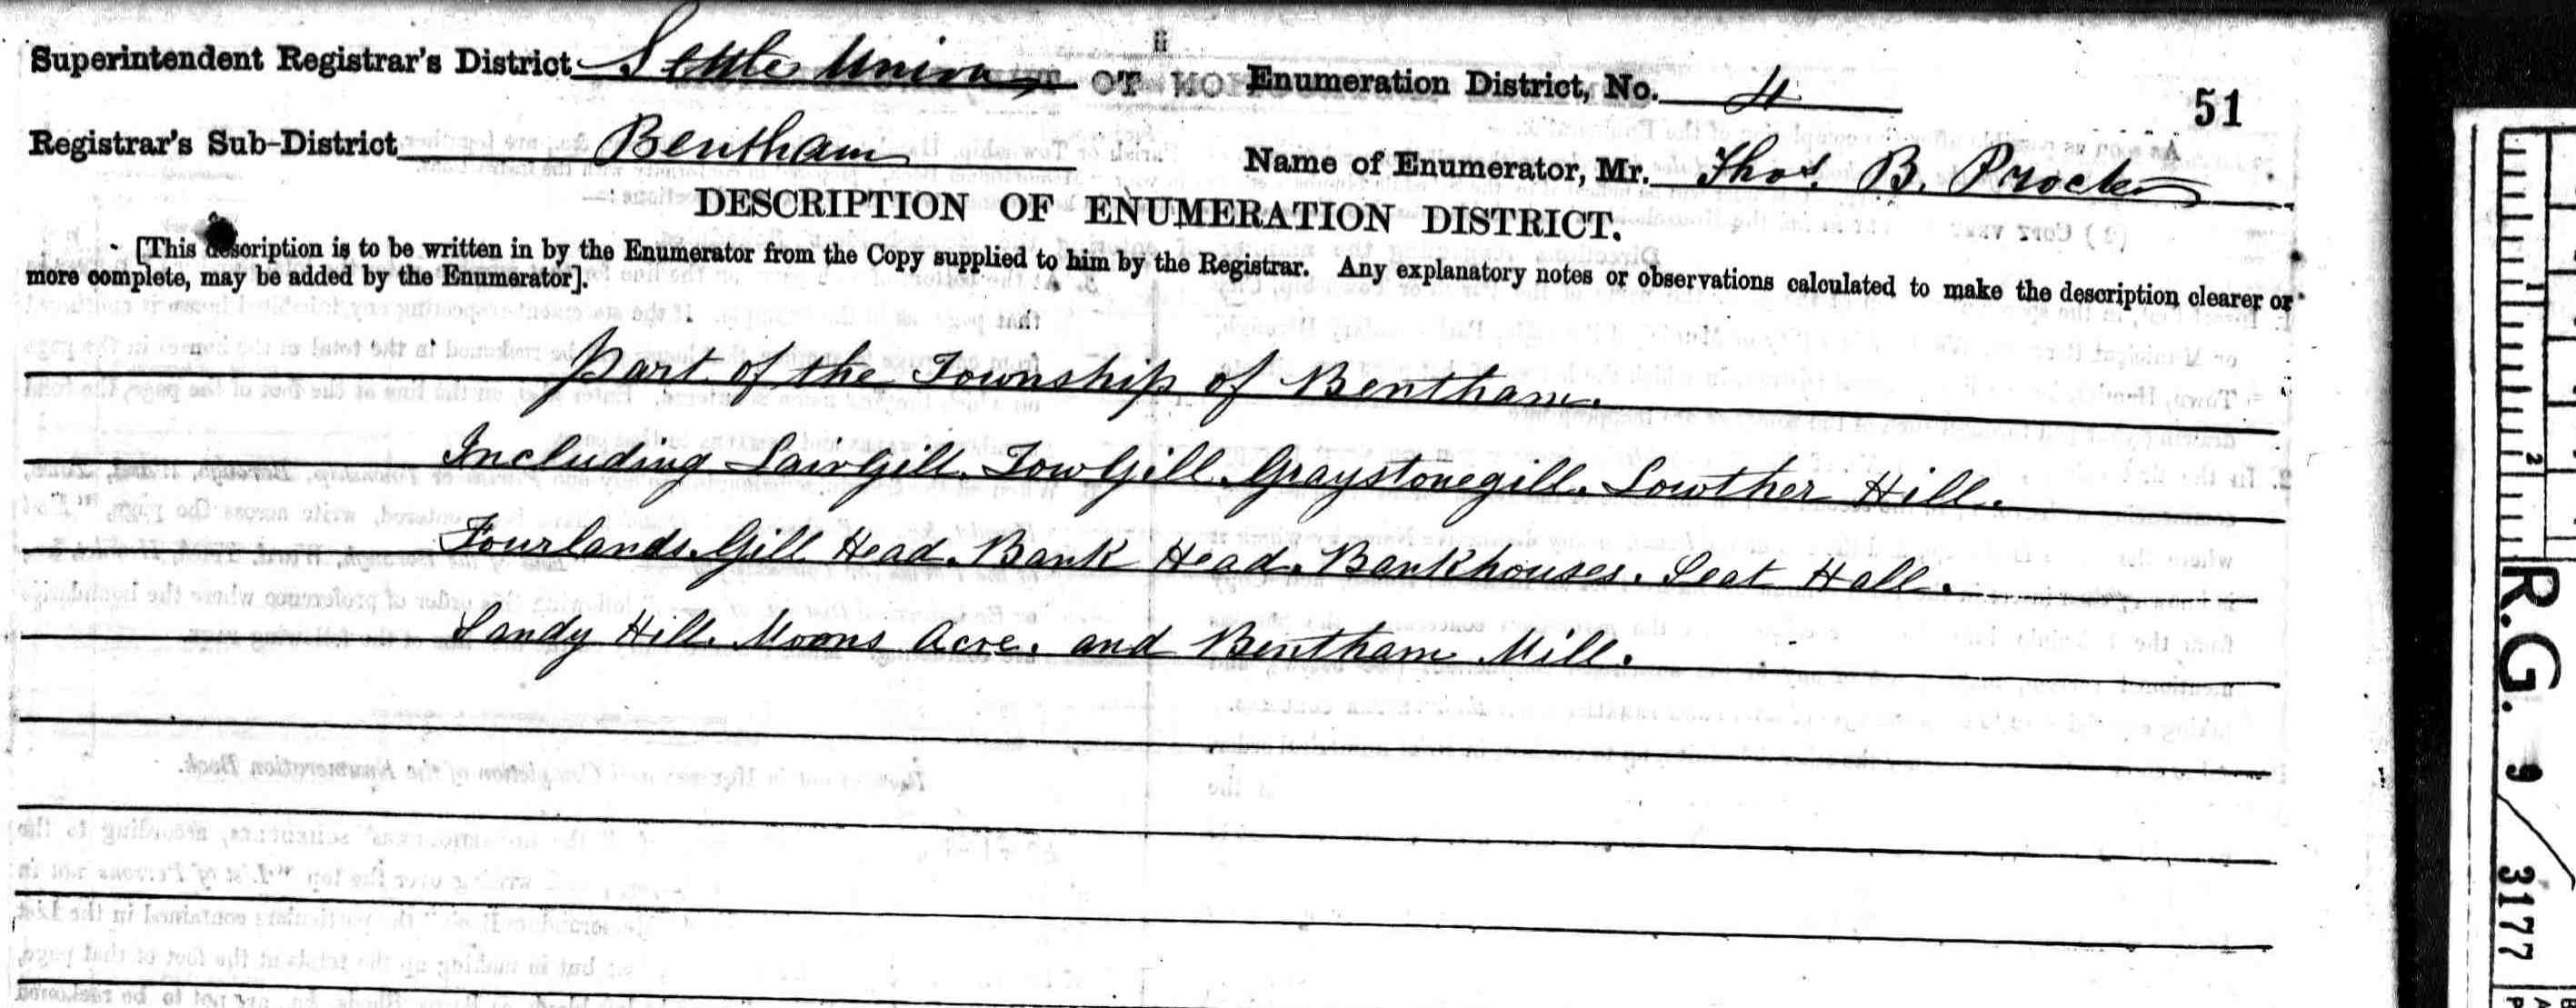 Superintendent Registrar's District Settle Union Enumeration District, No. 4
51
Registrar's Sub-District Bentham Name of Enumerator, Mr. Thos. B. Procter
DESCRIPTION OF ENUMERATION DISTRICT.
[This description is to be written in by the Enumerator from the Copy supplied to him by the Registrar. Any explanatory notes or observations calculated to make the description clearer or
more complete, may be added by the Enumerator].
Part of the Township of Bentham.
Including Lairgill. Tow Gill. Graystonegill. Lowther Hill.
Fourlands. Gill Head. Bank Head. Bankhouses. Seat Hall.
Sandy Hill. Moons Acre. and Bentham Mill.
R.G. 9/3177